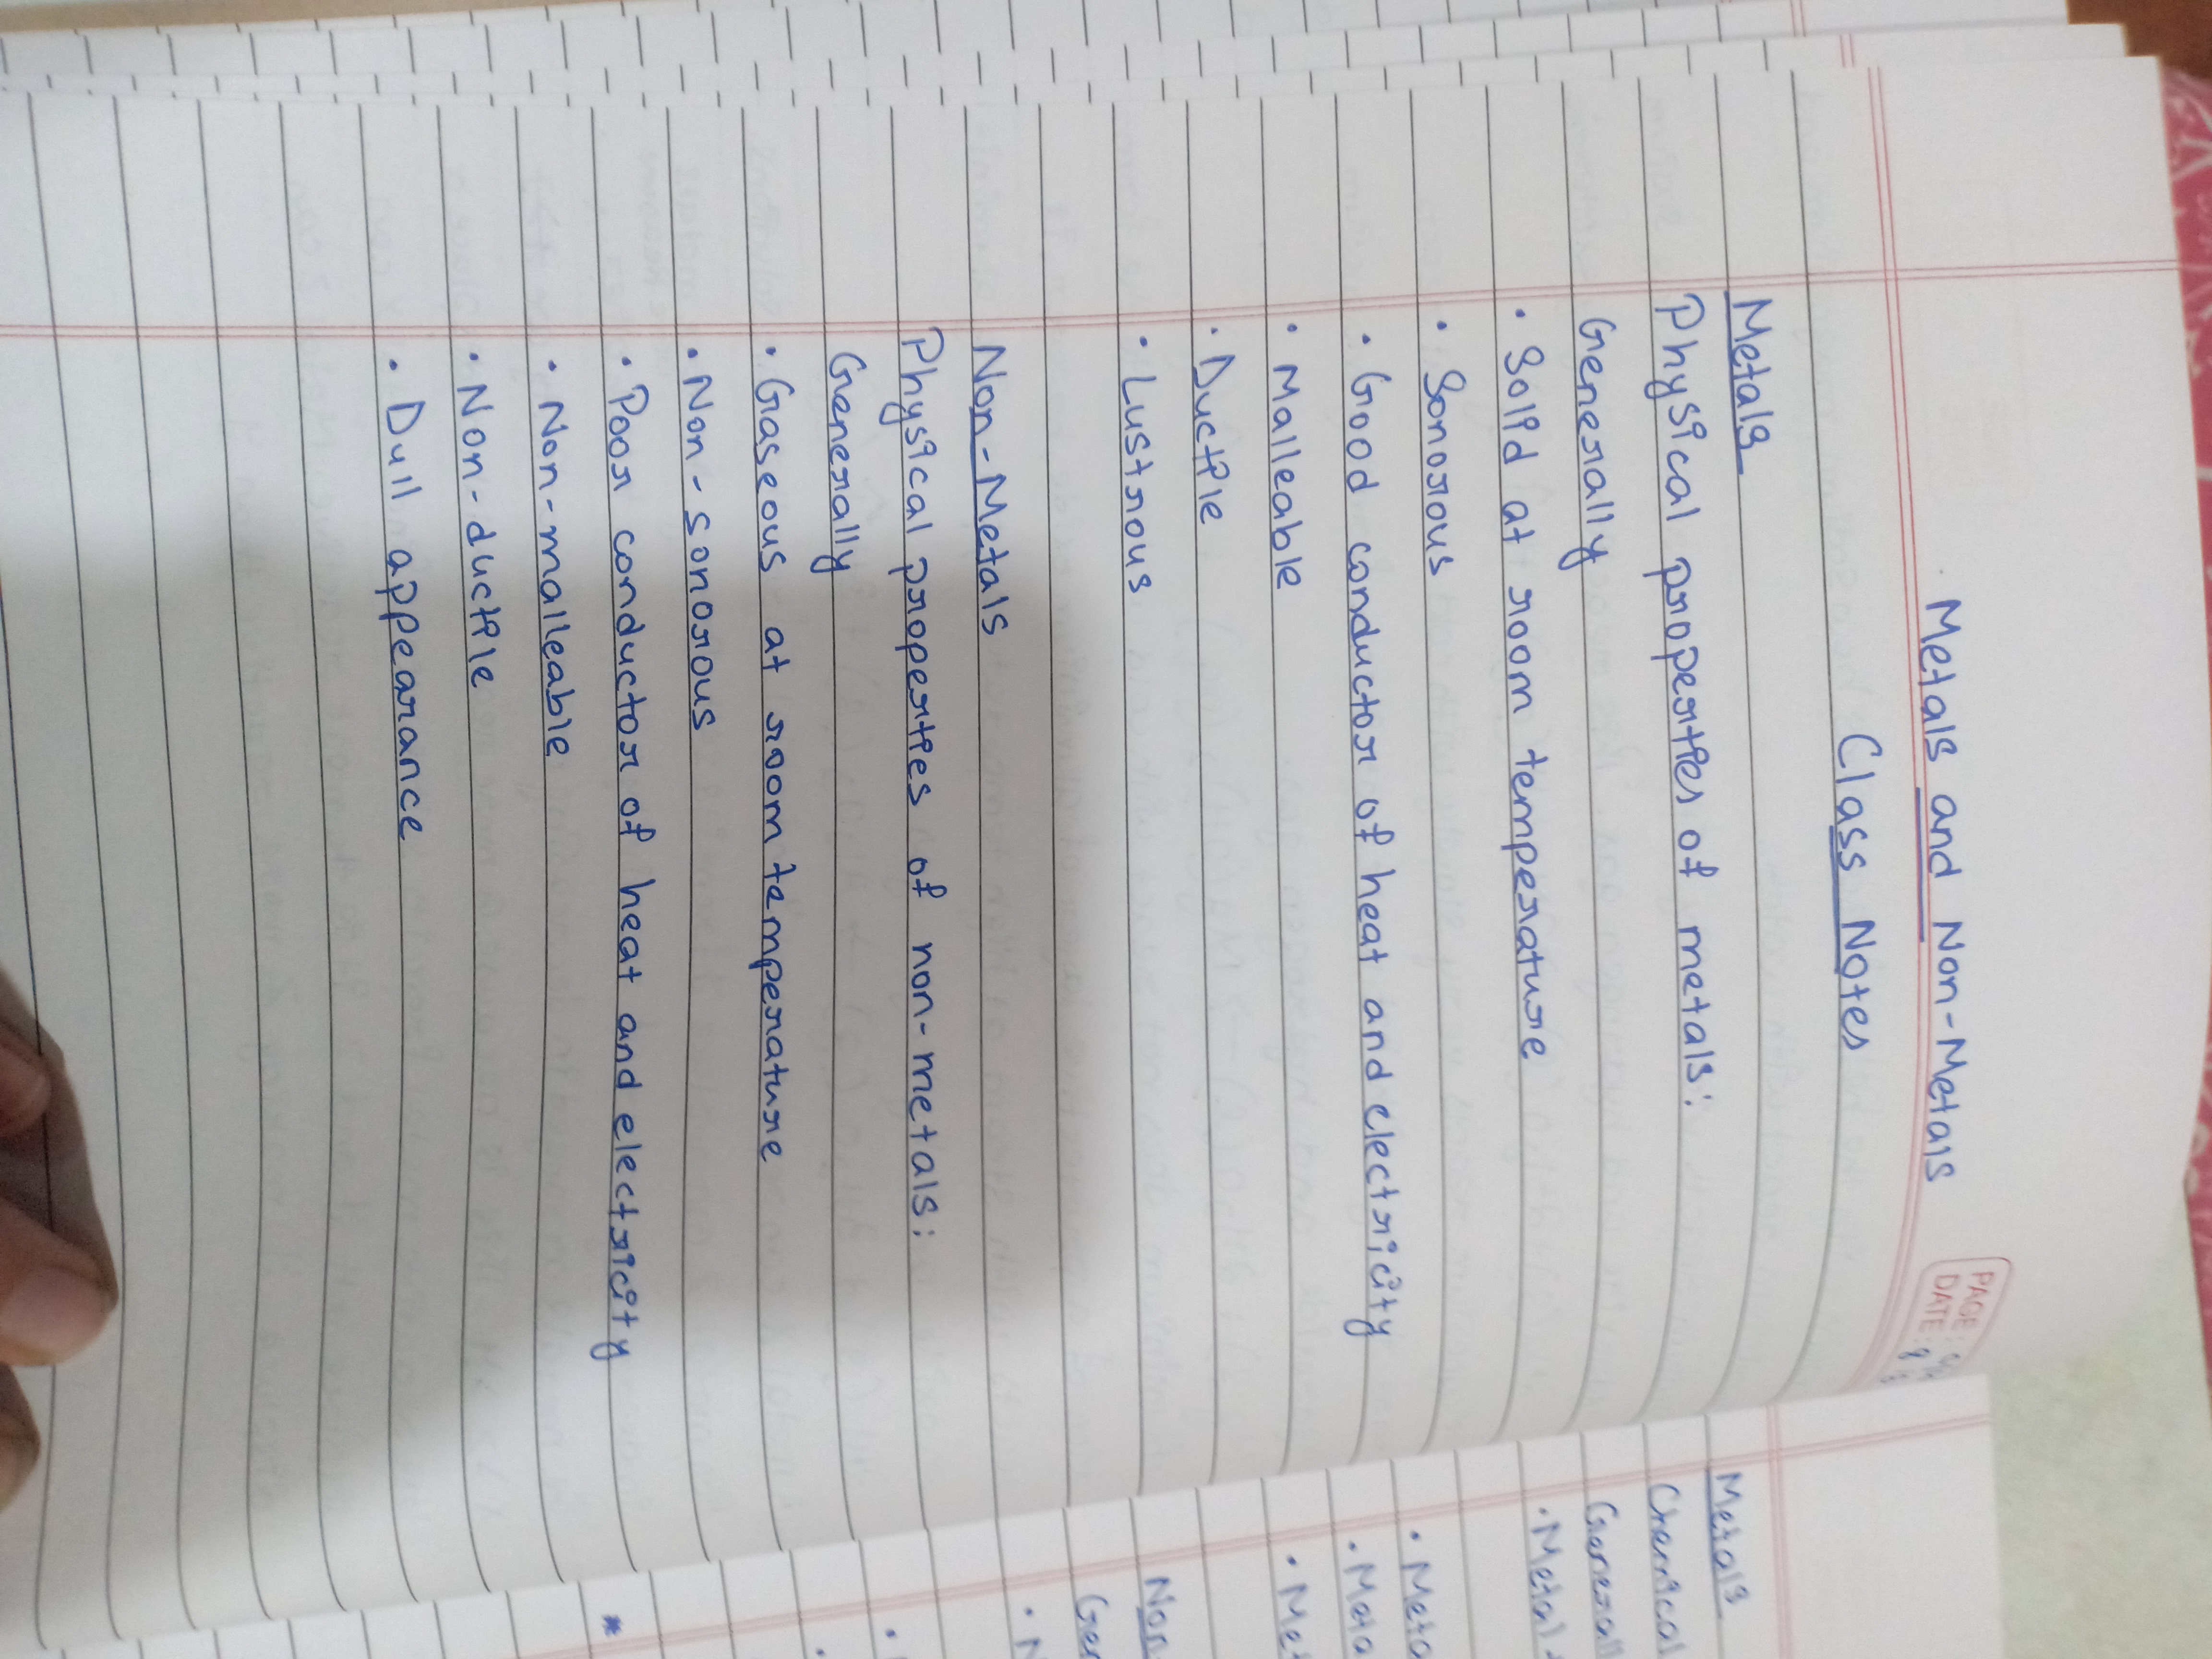 Metals and Non-Metals
PAGE:
DATE:
Class Notes
Metals
Physical properties of metals:
Generally
• Solid at room temperature
• Sonorous
• Good conductor of heat and electricity
• Malleable
• Ductile
• Lustrous
Non-Metals
Physical properties of non-metals:
Generally
• Gaseous at room temperature
• Non-sonorous
• Poor conductor of heat and electricity
• Non-malleable
• Non-ductile
• Dull appearance
Metals
Chemical
Generall
• Metal
• Meta
• Meta
• Met
Non
Gen
• N